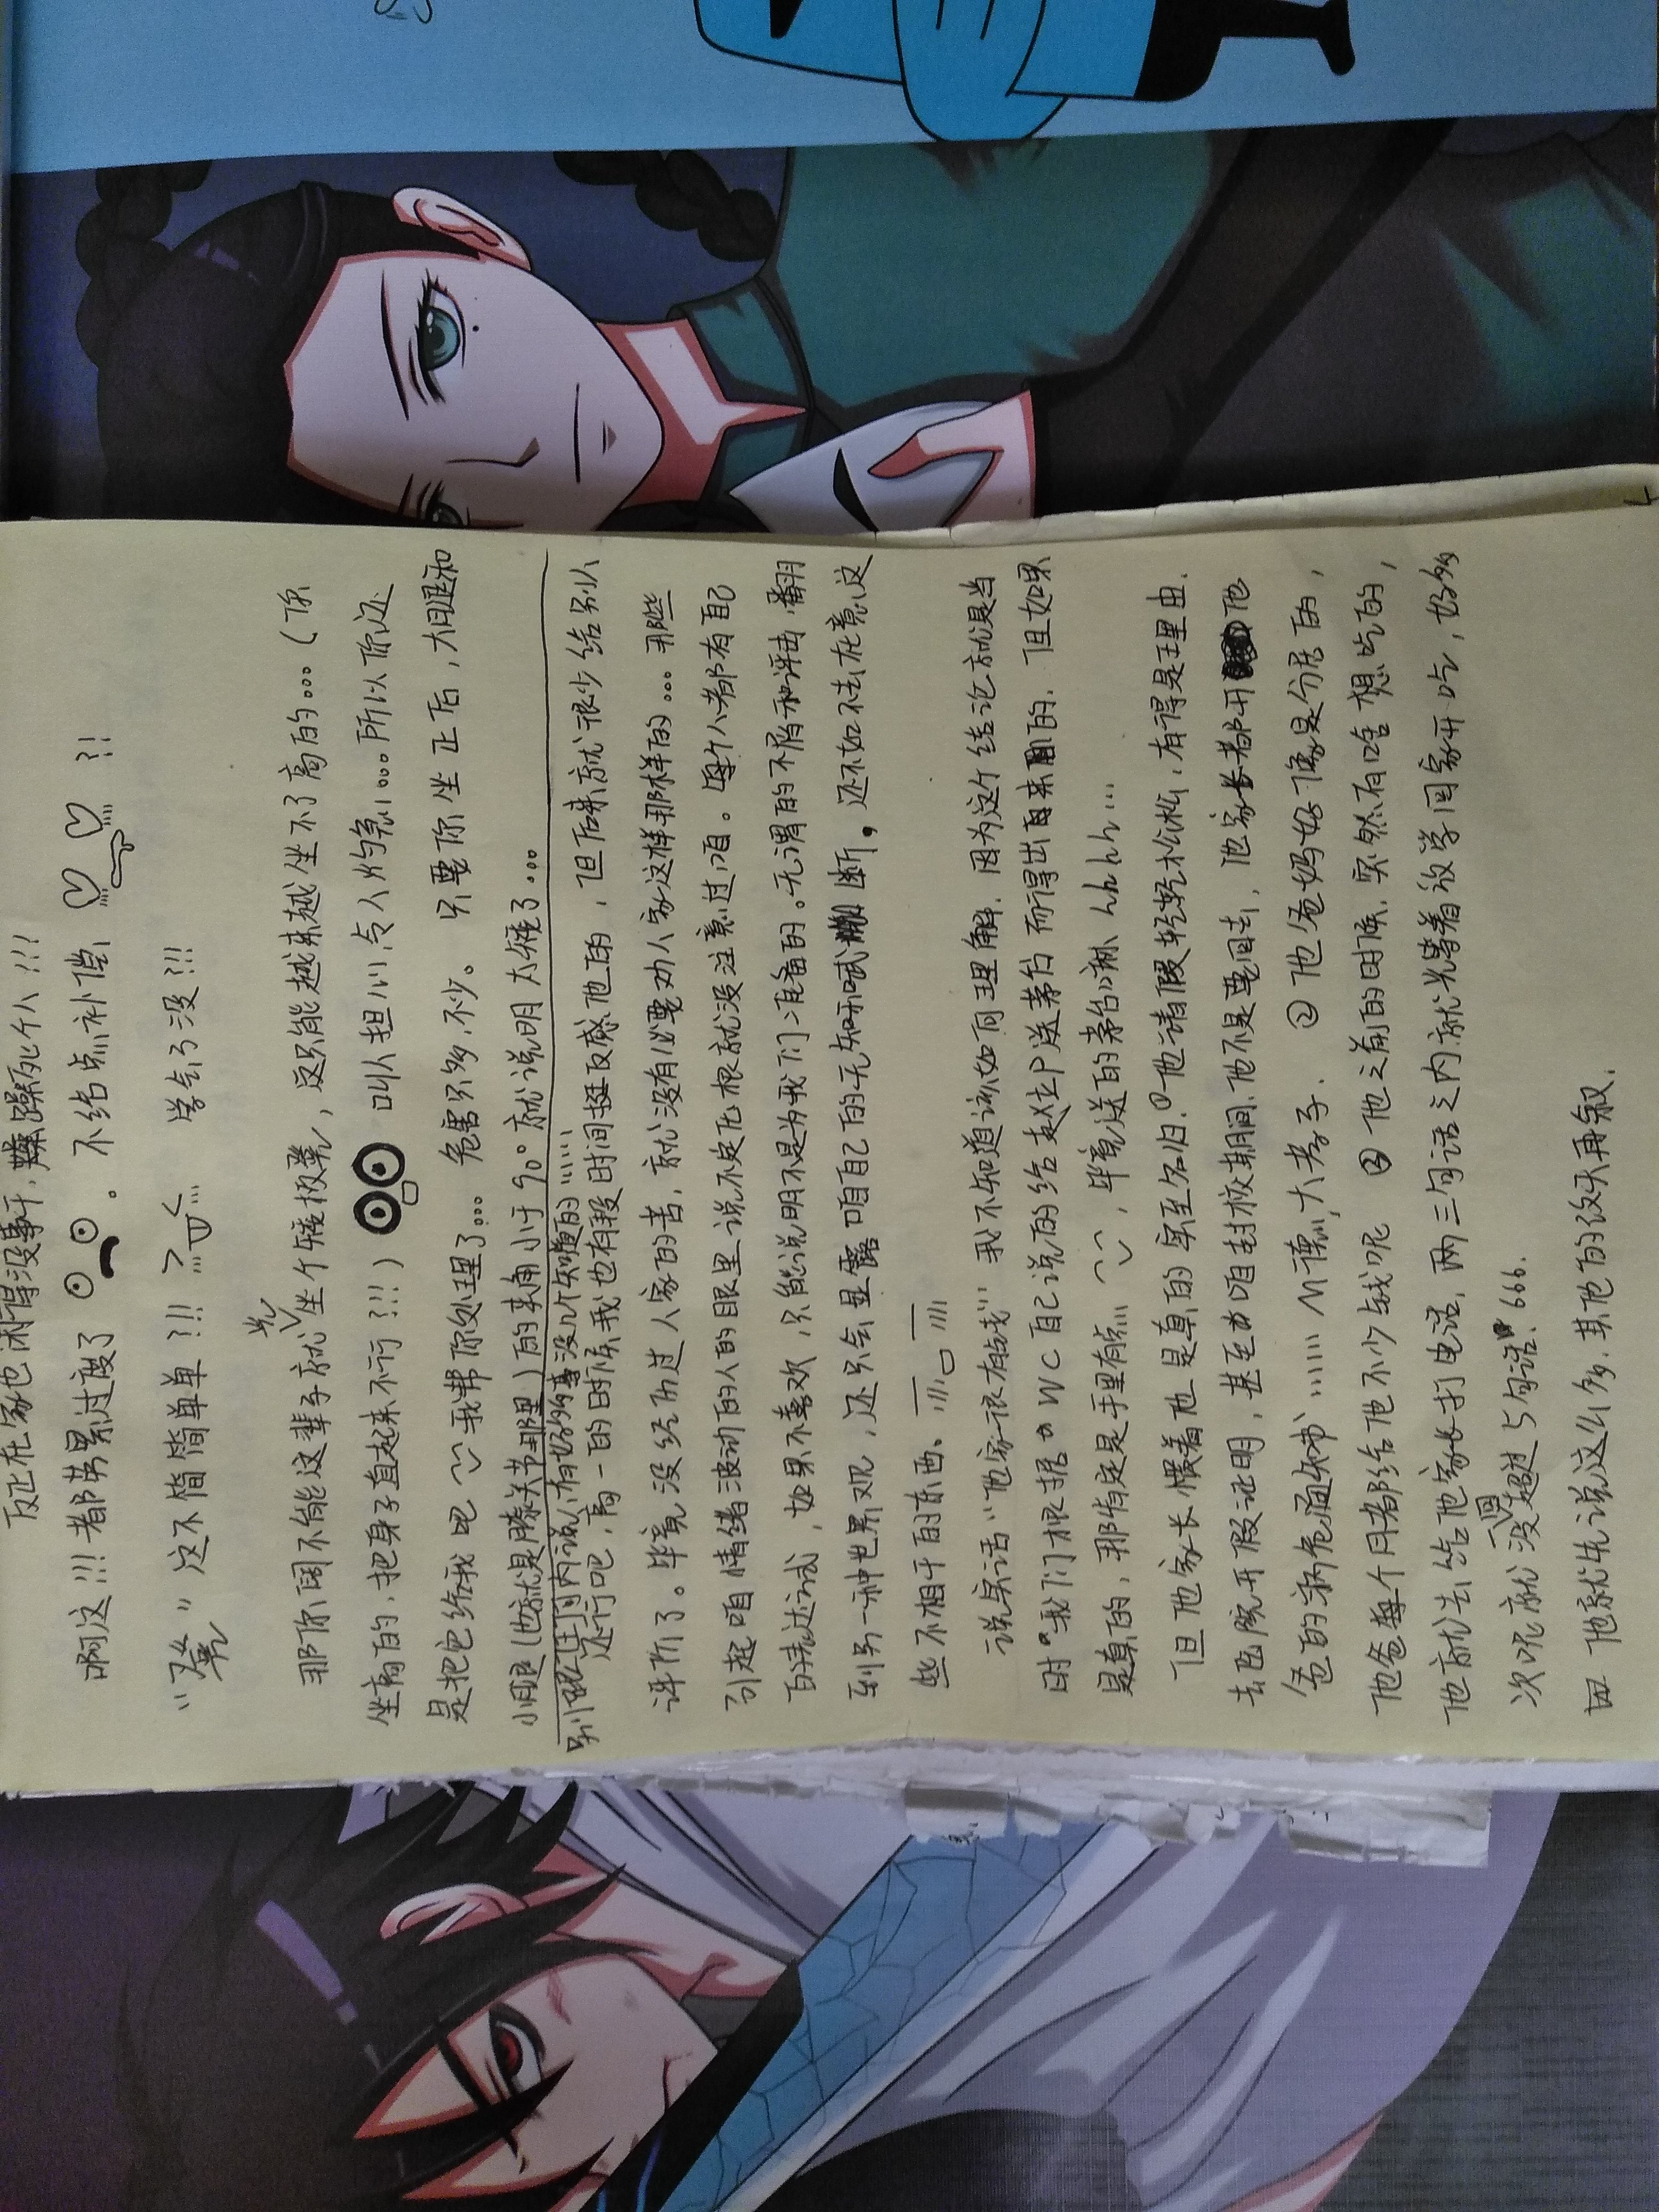 反正在家也闲得没事干,躁死个人!!!
啊这!!!都劳累过度了。不给点补偿?!
“凳”这不简简单单?!!学会了没?!!
光
那你阔不能这辈子就坐个矮板凳,这只能越来越坐不了高的…(你
坐高的,把身子直起来不行?!!)叫人担心,令人灼急…所以你还
是把它给我吧 我帮你处理了…危害只多不少。只要你坐正后,大腿和
小腿(也就是膝关节那里)的夹角小于90°就说明太矮了…
别跟任何内说,有好多事没几个知道的……
还行吧,高一的时候我也有段时间挺反感他的,但后来就很少给别人
评价了。毕竟没经历过人家的苦,就没有必要劝人家这样那样的…那些
引起咱情绪波动的人的眼里说不定压根就没注意过咱。每个人都有自己
的表达方式,如果不喜欢,只能说明不是为我们准备的。无谓的不屑和评击,翻
到另一种世界观,还只会显露咱自己的无知和武断。还不如不去在意这
些不相干的东西。
说实话“他家很有钱”我不知道该如何理解.因为这个结论就是当
时我们根据WC自己说的给赵立P送茅台而得出来的.但如果
是真的,那肯定是手里有点,毕竟送的茅台嘛hhhh…
但他家长惯着他是真的实至名归.①他请假轻轻松松,有得是理由.
去医院开假证明,甚至咱封校期间,他不是要回去,他家长都开他
爸的病危通知书……M德,大孝子. ②他爸妈好像是分居的,
他爸每个月都给他不少钱呢 ③他之前的时候,突然有啥想吃的,
他就去给他家长打电话,两三句话之内就光等着放学回家开吃,好多
一回
次呢就没超过5句话.666.
他就先说这么多.其他的改天再叙.